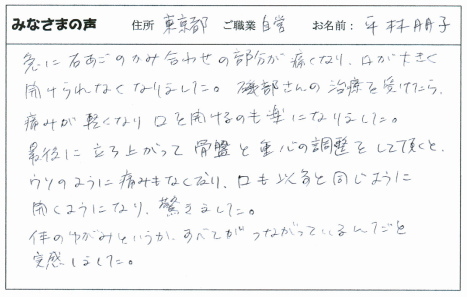 みなさまの声 住所 東京都 ご職業 自営 お名前： 平林朋子
急に右あごのかみ合わせの部分が痛くなり、口が大きく
開けられなくなりました。磯部さんの治療を受けたら、
痛みが軽くなり口を開けるのも楽になりました。
最後に立ち上がって骨盤と重心の調整をして頂くと、
ウソのように痛みもなくなり、口も以前と同じように
開くようになり、驚きました。
体のゆがみというか、すべてがつながっているんだと
実感しました。